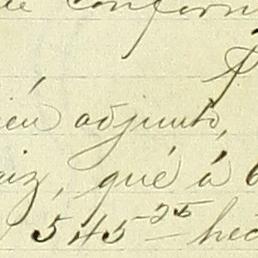 conform
ién adjunto,
aiz, qué á 6
545 25 hec